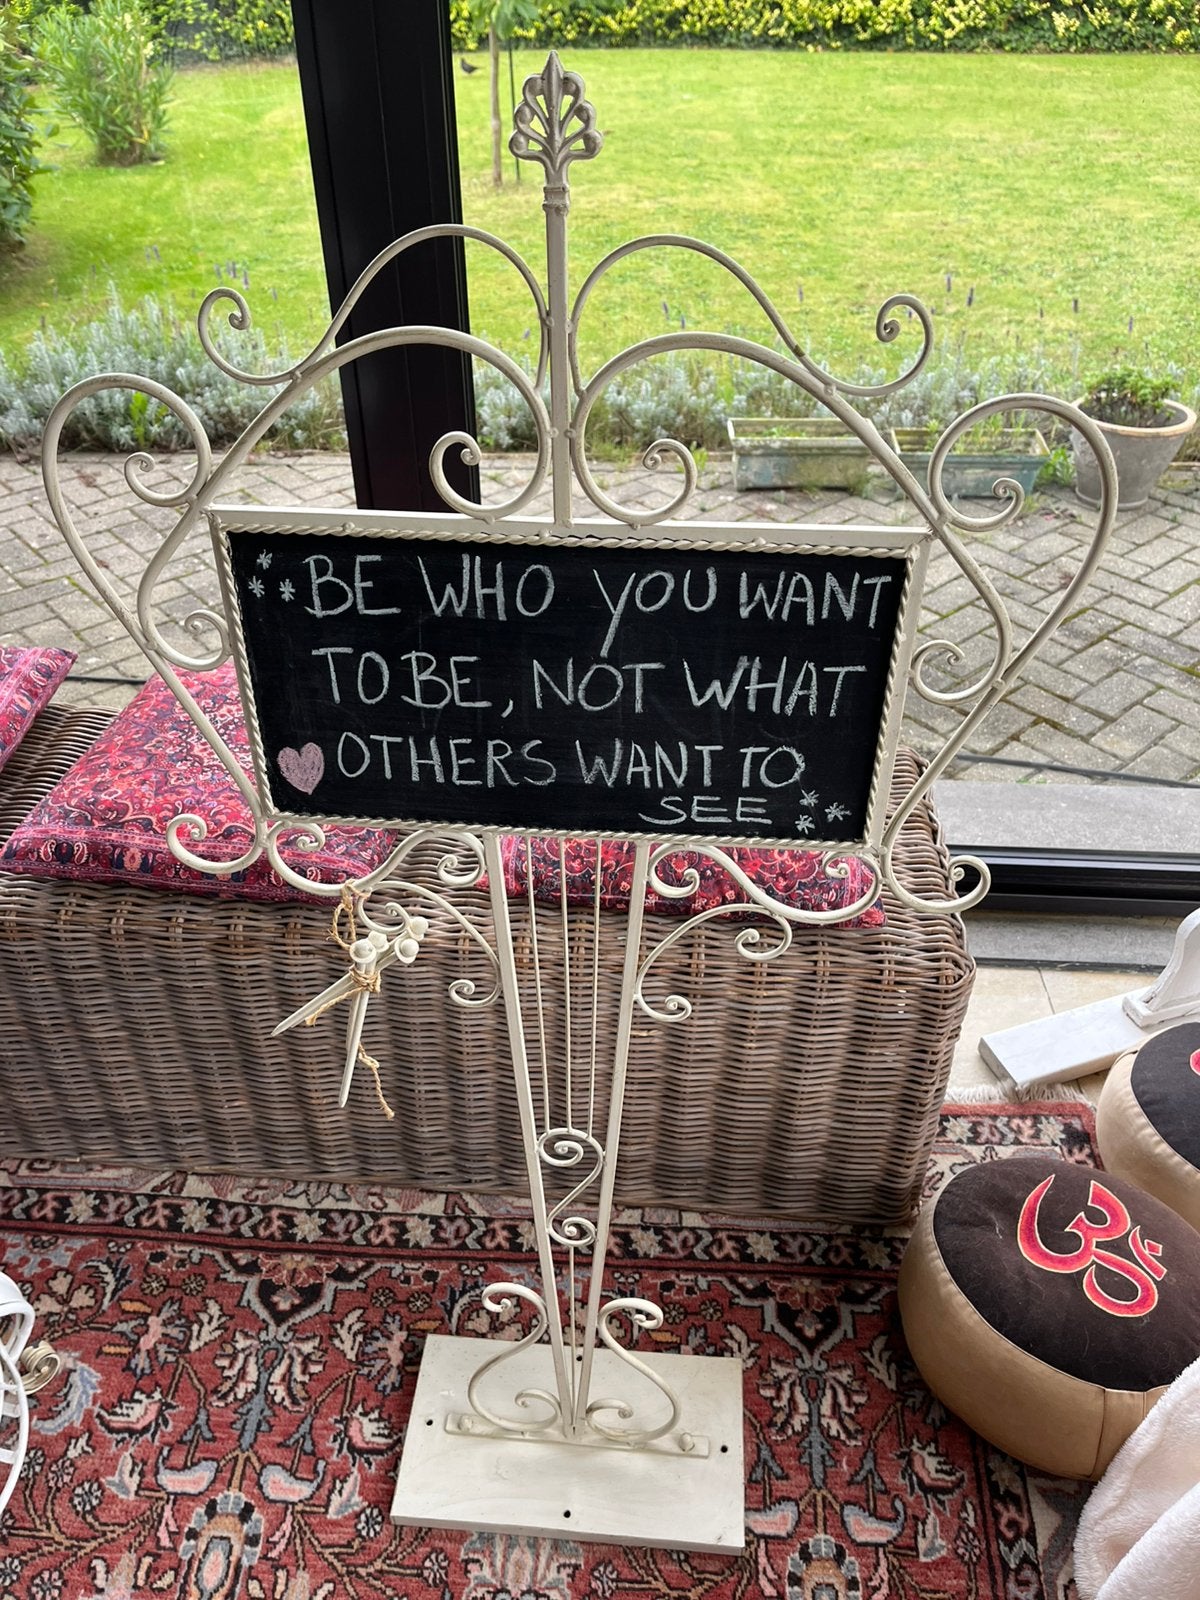 BE WHO YOU WANT
TO BE, NOT WHAT
OTHERS WANT TO
SEE
ॐ